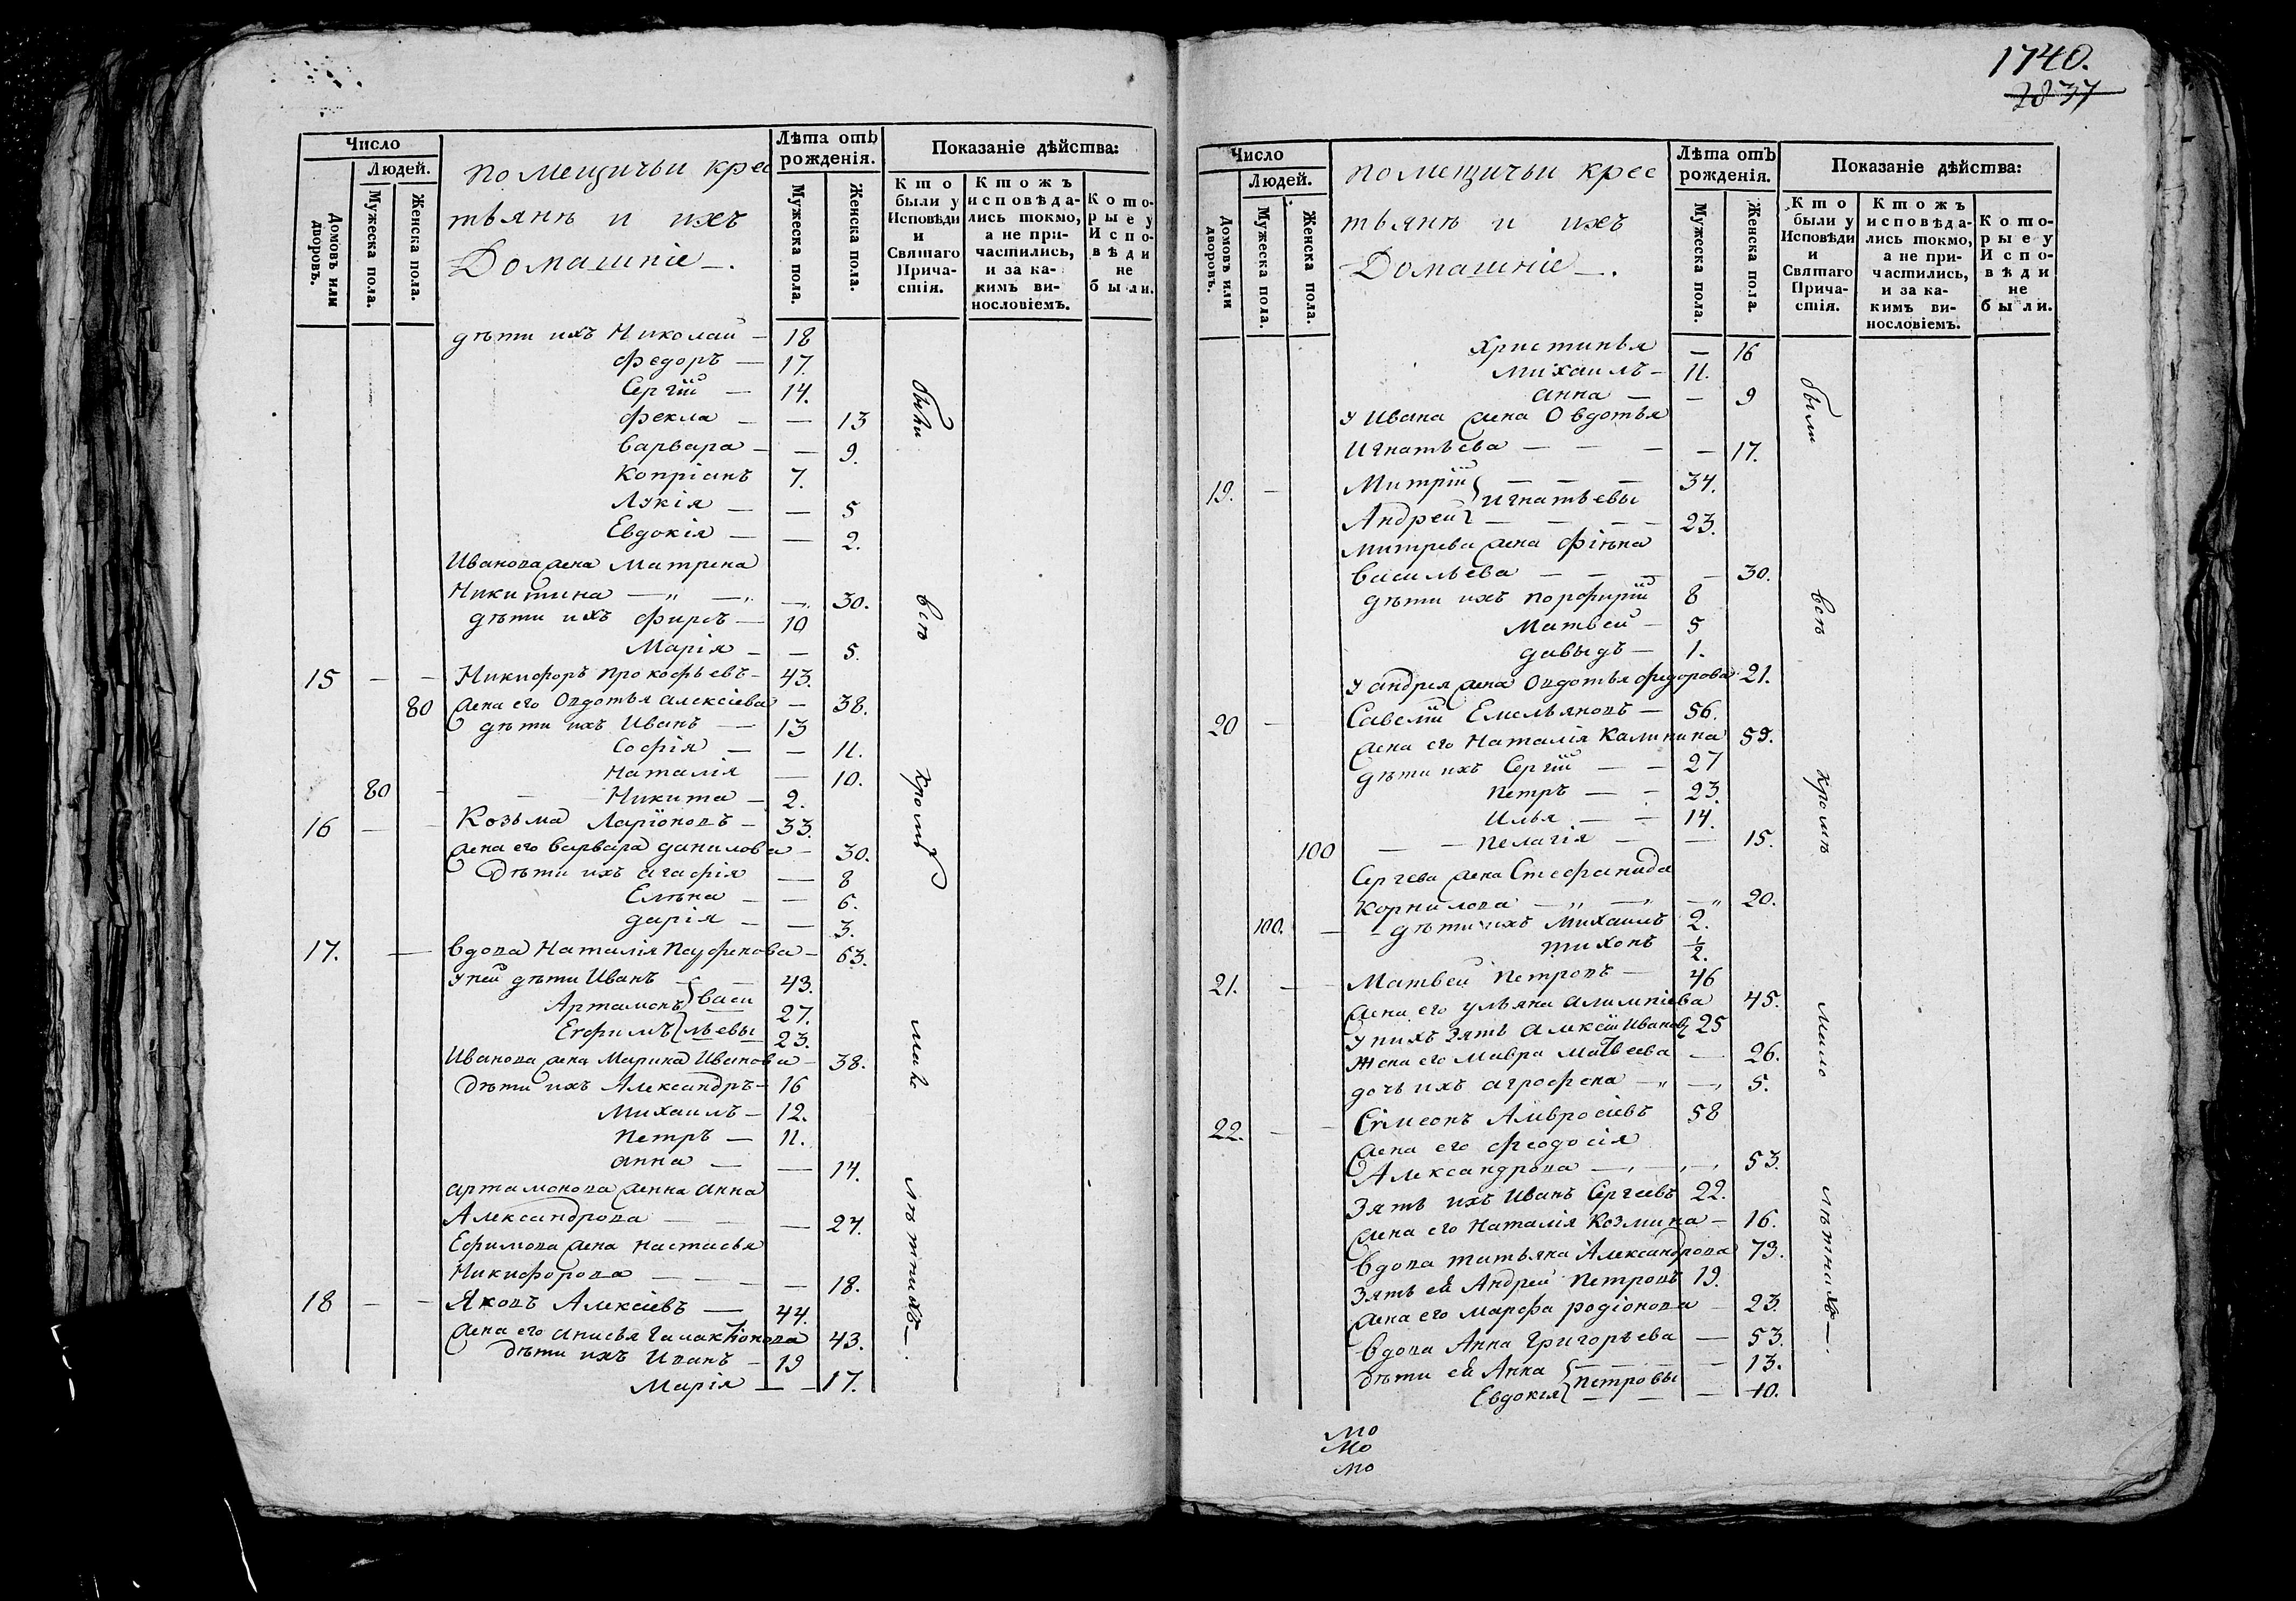 Число
Людей.
Домовъ или дворовъ.
Мужеска пола.
Женска пола.
помещичьи крес
тьянъ и ихъ
Домашніе —.
Лѣта отъ рожденія.
Мужеска пола.
Женска пола.
Показаніе дѣйства:
Кто были у Исповѣди и Святаго Причастія.
Ктожъ исповѣдались токмо, а не причастились, и за какимъ винословіемъ.
Которые у Исповѣди не были.
дѣти ихъ Николай — 18
Федоръ — 17.
Сергій — 14.
Фекла — — 13
Варвара — — 9.
Копріанъ 7.
Лукія — — 5
Евдокія — — 2.
Иванова жена Матрена
Никитина — „ — „ — „ 30.
дѣти ихъ Фирсъ — 10
Марія — — 5.
15 — — Никифоръ Прокофьевъ — 43.
80 жена его Овдотья Алексіева — 38.
дѣти ихъ Иванъ — — 13
Софія — — 11.
Наталія — 10.
80 — — Никита — 2.
16 — — Козьма Ларіоновъ — 33.
жена его Варвара Данилова — 30.
Дѣти ихъ Агафія — 8
Елѣна — — 6.
Дарія — — 3.
17. — Вдова Наталія Парфенова — 63.
У ней дѣти Иванъ — — 43.
Артамонъ } Васи 27.
Ефимъ } льевы 23.
Иванова жена Марина Иванова — 38.
Дѣти ихъ Александръ — 16
Михаилъ — 12.
Петръ — 11.
Анна — — 14.
Артамонова женна Анна
Александрова — — — 27.
Ефимова жена Настасья
Никифорова — — — — 18.
18 — — Яковъ Алексіевъ — 44.
жена его Анисья Галактіонова 43.
Дѣти ихъ Иванъ — 19
Марія — — 17.
были всѣ кромѣ мало лѣтнихъ —.
1740.
2837
Число
Людей.
Домовъ или дворовъ.
Мужеска пола.
Женска пола.
помещичьи крес
тьянъ и ихъ
Домашніе —.
Лѣта отъ рожденія.
Мужеска пола.
Женска пола.
Показаніе дѣйства:
Кто были у Исповѣди и Святаго Причастія.
Ктожъ исповѣдались токмо, а не причастились, и за какимъ винословіемъ.
Которые у Исповѣди не были.
Христинья — 16
Михаилъ — 11.
Анна — — 9
У Ивана жена Овдотья
Игнатьева — — — — 17.
19. — Митрій } — — — 34.
Игнатьевы
Андрей } — — — — 23.
Митрева жена Фіѣна
Васильева — — — — 30.
дѣти ихъ Порфирій 8
Матвей — 5
Давыдъ — 1.
У Андрея жена Овдотья Федорова 21.
20 — Савелій Емельяновъ — 56.
жена его Наталія Калинина 59.
дѣти ихъ Сергій — — 27
Петръ — — 23.
Илья — — 14.
100 — — Пелагія — — 15.
Сергева жена Стефанида
Корнилова — „ — „ — „ 20.
100. — — дѣти ихъ Михаилъ 2.
Тихонъ 1/2.
21. — — Матвей Петровъ — 46
жена его Ульяна Алимпіева 45.
У нихъ зять Алексій Ивановъ 25
Жена его Мавра Матвеева — 26.
дочь ихъ Агрофена — „ — „ 5.
22. — — Сѵмеонъ Амвросіевъ 58
жена его Феодосія
Александрова — „ — „ — „ 53.
Зять ихъ Иванъ Сергеевъ 22.
жена его Наталія Козмина — 16.
Вдова Татьяна Александрова 73.
Зять ей Андрей Петровъ 19.
жена его Марфа Родіонова — 23.
Вдова Анна Григорьева — 53.
Дѣти ей Анна } — — — — 13.
Евдокія } Петровы — 10.
были всѣ кромѣ мало лѣтнихъ —.
мо
мо
мо